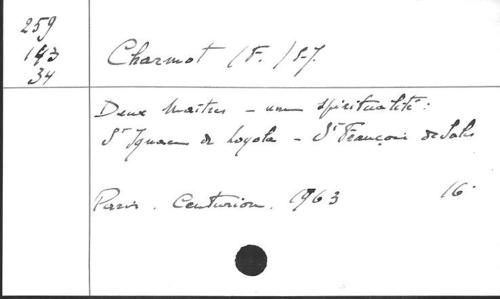 259
193
34
Charmot (F.) S.J.
Deux Maitres - une spiritualité :
St Ignace de Loyola - St François de Sales
Paris. Centurion. 1963 16°